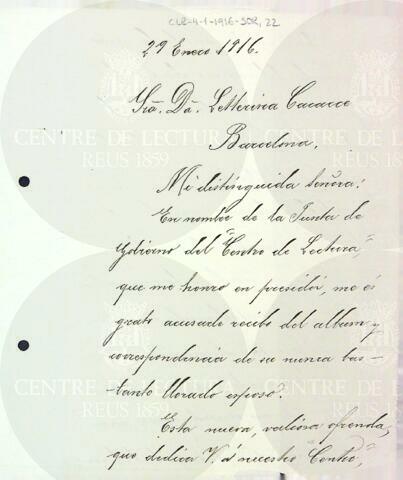 CLR-4-1-1916-SOR, 22
29 Enero 1916.
Sra. Da. Letterina Cacacce
Barcelona.
Mi distinguida Señora:
En nombre de la Junta de
Gobierno del "Centro de Lectura,"
que me honro en presidir, me és
grato acusarle recibo del album y
correspondencia de su nunca bas-
tante llorado esposo.
Esta nueva, valiosa ofrenda,
que dedica V. á nuestro "Centro,"
CENTRE DE LECTURA
REUS 1859
CENTRE DE LECTURA
REUS 1859